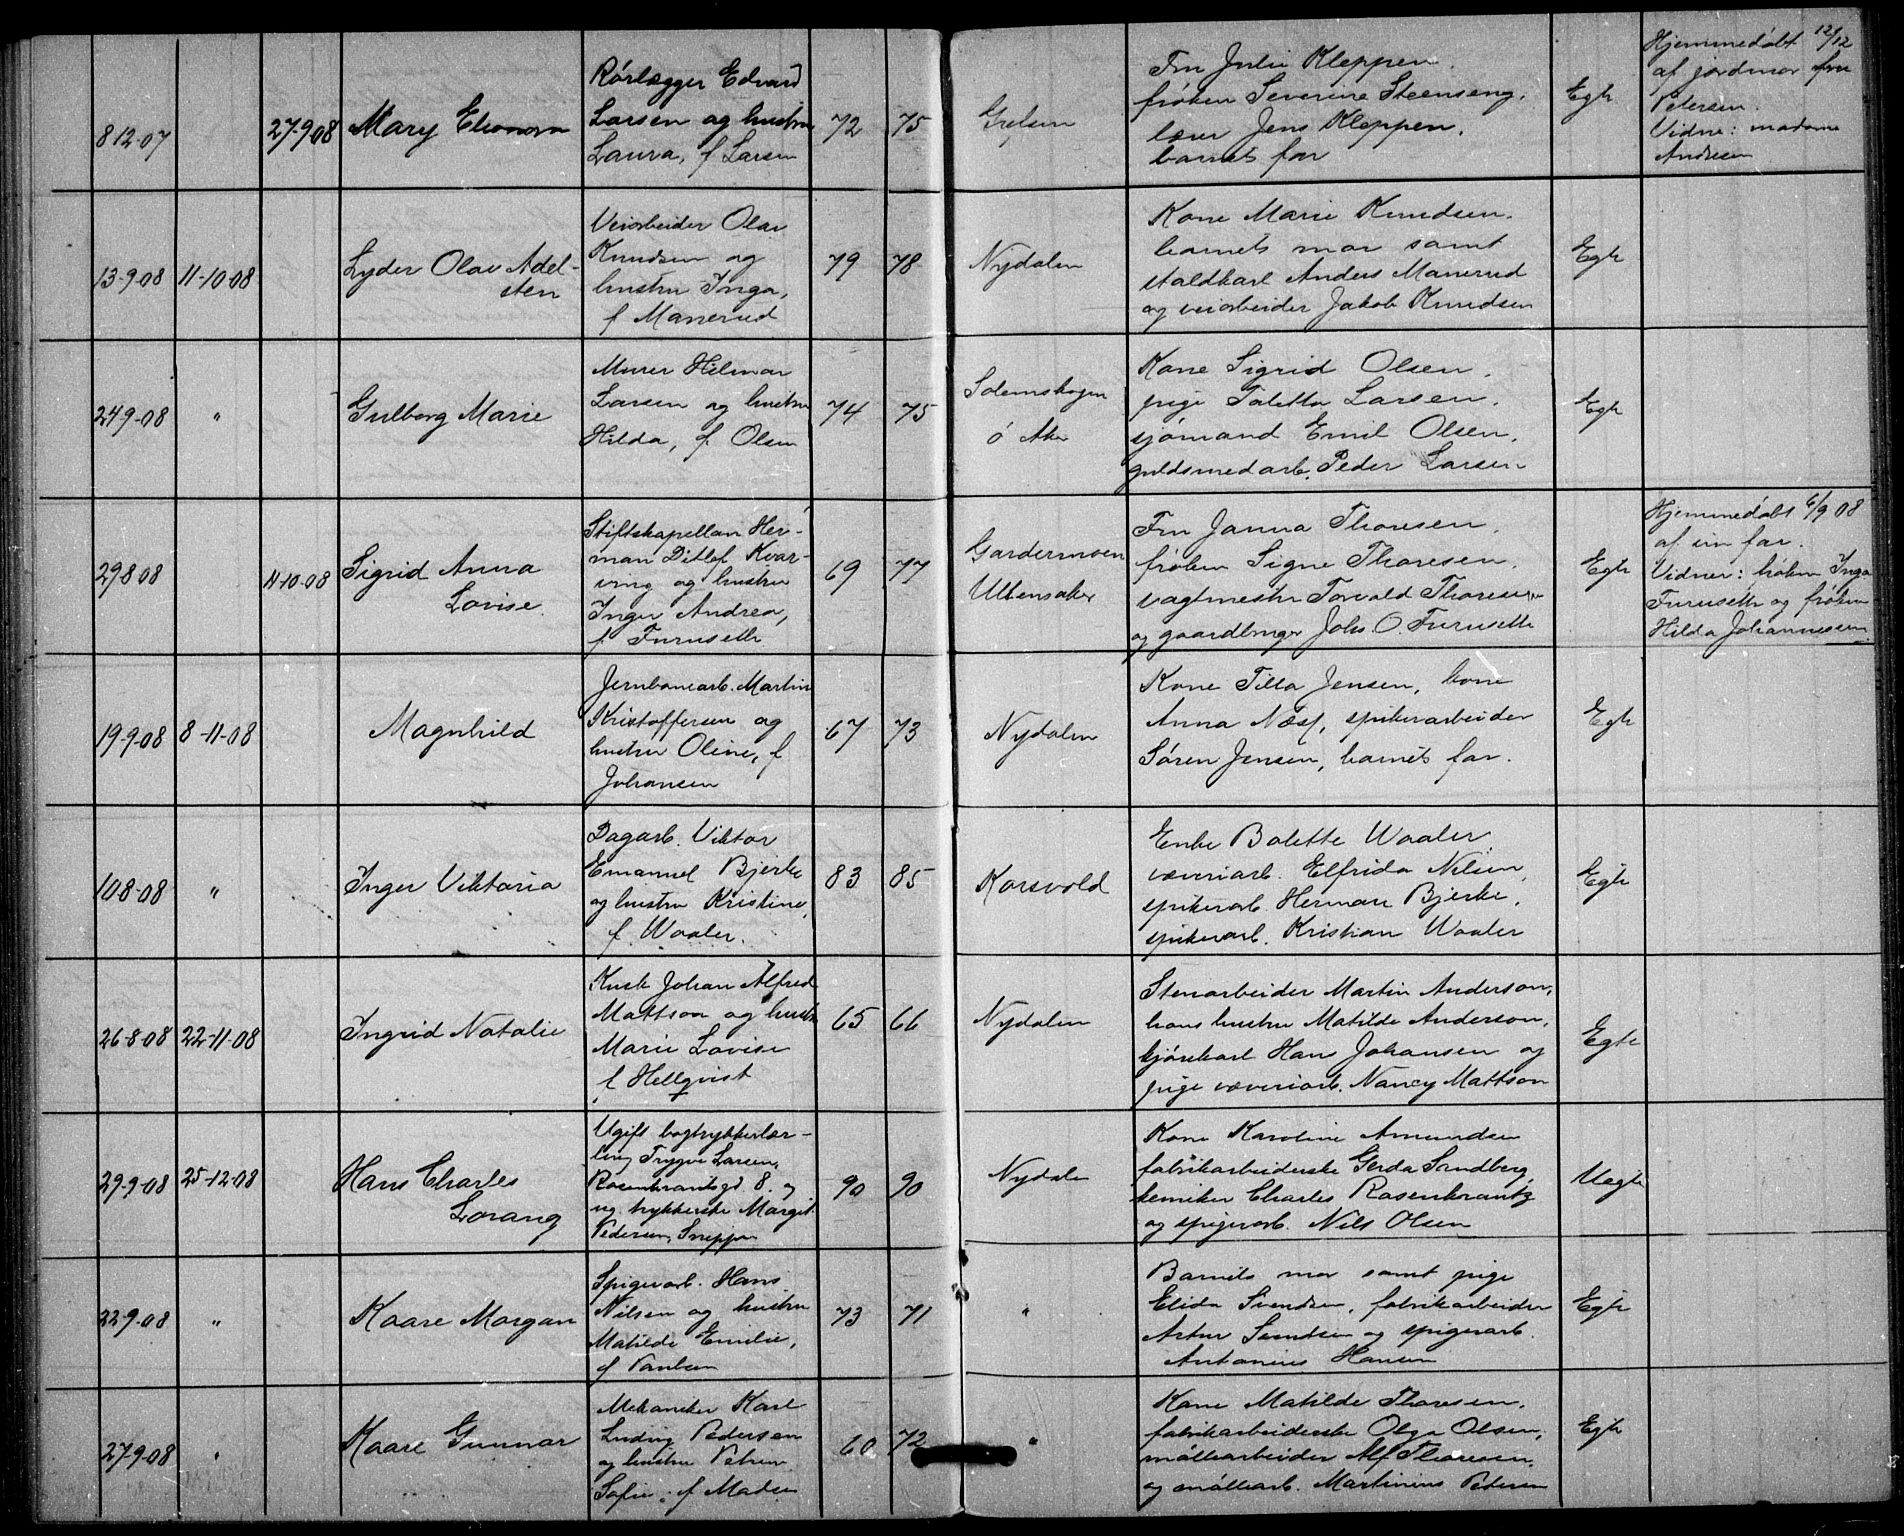 8-12-07
27-9-08
Mary Eleonora
Rörlægger Edvard
Larsen og hustru
Laura, f Larsen
72
75
Grefsen
Fru Julie Kleppen.
frøken Severine Steenseng.
lærer Jens Kleppen.
barnets far
Egte
Hjemmedöbt 12/12
af jordmor fru
Petersen.
Vidne: madame
Andresen
13-9-08
11-10-08
Lyder Olav Adel-
sten
Veiarbeider Olav
Knudsen og
hustru Inga,
f Manerud
79
78
Nydalen
Kone Marie Knudsen.
barnets mor samt
staldkarl Anders Manerud
og veiarbeider Jakob Knudsen
Egte
24-9-08
"
Gulborg Marie
Murer Hilmar
Larsen og hustru
Hilda, f Olsen
74
75
Solemskogen
ö Aker
Kone Sigrid Olsen.
pige Taletta Larsen.
sjömand Emil Olsen.
guldsmedarb. Peder Larsen
Egte
29-8-08
11-10-08
Sigrid Anna
Lovise
Stiftskapellan Her-
man Ditlef Kvar-
ving og hustru
Inger Andrea,
f Furuseth
69
77
Gardermoen
Ullensaker
Fru Janna Thoresen.
frøken Signe Thoresen.
vagtmester Torvald Thoresen
og gaardbruger Johs. O. Furuseth
Egte
Hjemmedöbt 6/9 08
af sin far.
Vidner: frøken Inga
Furuseth og frøken
Hilda Johannessen
19-9-08
8-11-08
Magnhild
Jernbanearb. Martin
Kristoffersen og
hustru Oline, f
Johansen
67
73
Nydalen
Kone Tilla Jensen, kone
Anna Næss, spikerarbeider
Sören Jensen, barnets far.
Egte
10-8-08
"
Inger Viktoria
Dagarb. Viktor
Emanuel Bjerke
og hustru Kristine,
f Waaler.
83
85
Korsvold
Enke Bolette Waaler
væveriarb. Elfrida Nilsen,
spikerarb. Herman Bjerke,
spikerarb. Kristian Waaler
Egte
26-8-08
22-11-08
Ingrid Natalie
Kusk Johan Alfred
Mattson og hustru
Marie Lovise
f Hellqvist
65
66
Nydalen
Stenarbeider Martin Anderson,
hans hustru Matilde Anderson,
kjörekarl Hans Johansen og
pige væveriarb. Nancy Mattson
Egte
29-9-08
25-12-08
Hans Charles
Lorang
Ugift bogtrykkerlær-
ling Trygve Larsen,
Rosenkrantsgd 8. og
ug. trykkerske Margit
Pedersen, Snippen
90
90
Nydalen
Kone Karoline Amundsen
fabrikarbeiderske Gerda Sandberg,
kemiker Charles Rosenkrantz
og spigerarb. Nils Olsen
Uegte
22-9-08
"
Kaare Morgan
Spigerarb. Hans
Nilsen og hustru
Matilde Emilie,
f Paulsen
73
71
"
Barnets mor samt pige
Elida Svendsen, fabrikarbeider
Artur Svendsen og spigerarb.
Antonius Hansen
Egte
27-9-08
"
Kaare Gunnar
Mekaniker Karl
Ludvig Pedersen
og hustru Petra
Sofie, f Madsen
60
72
"
Kone Matilde Thoresen,
fabrikarbeiderske Olga Olsen,
möllearbeider Alf Thoresen,
og möllearb. Martinius Pedersen
Egte